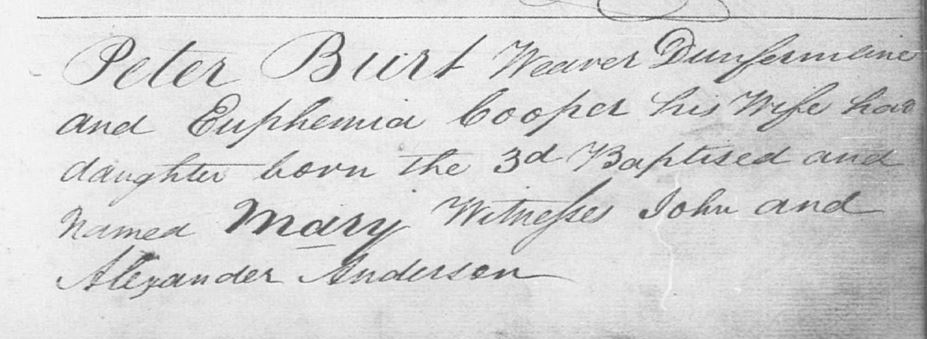 Peter Burt Weaver Dunfermline
and Euphemia Cooper his Wife had
daughter born the 3d Baptised and
Named Mary Witnesses John and
Alexander Anderson